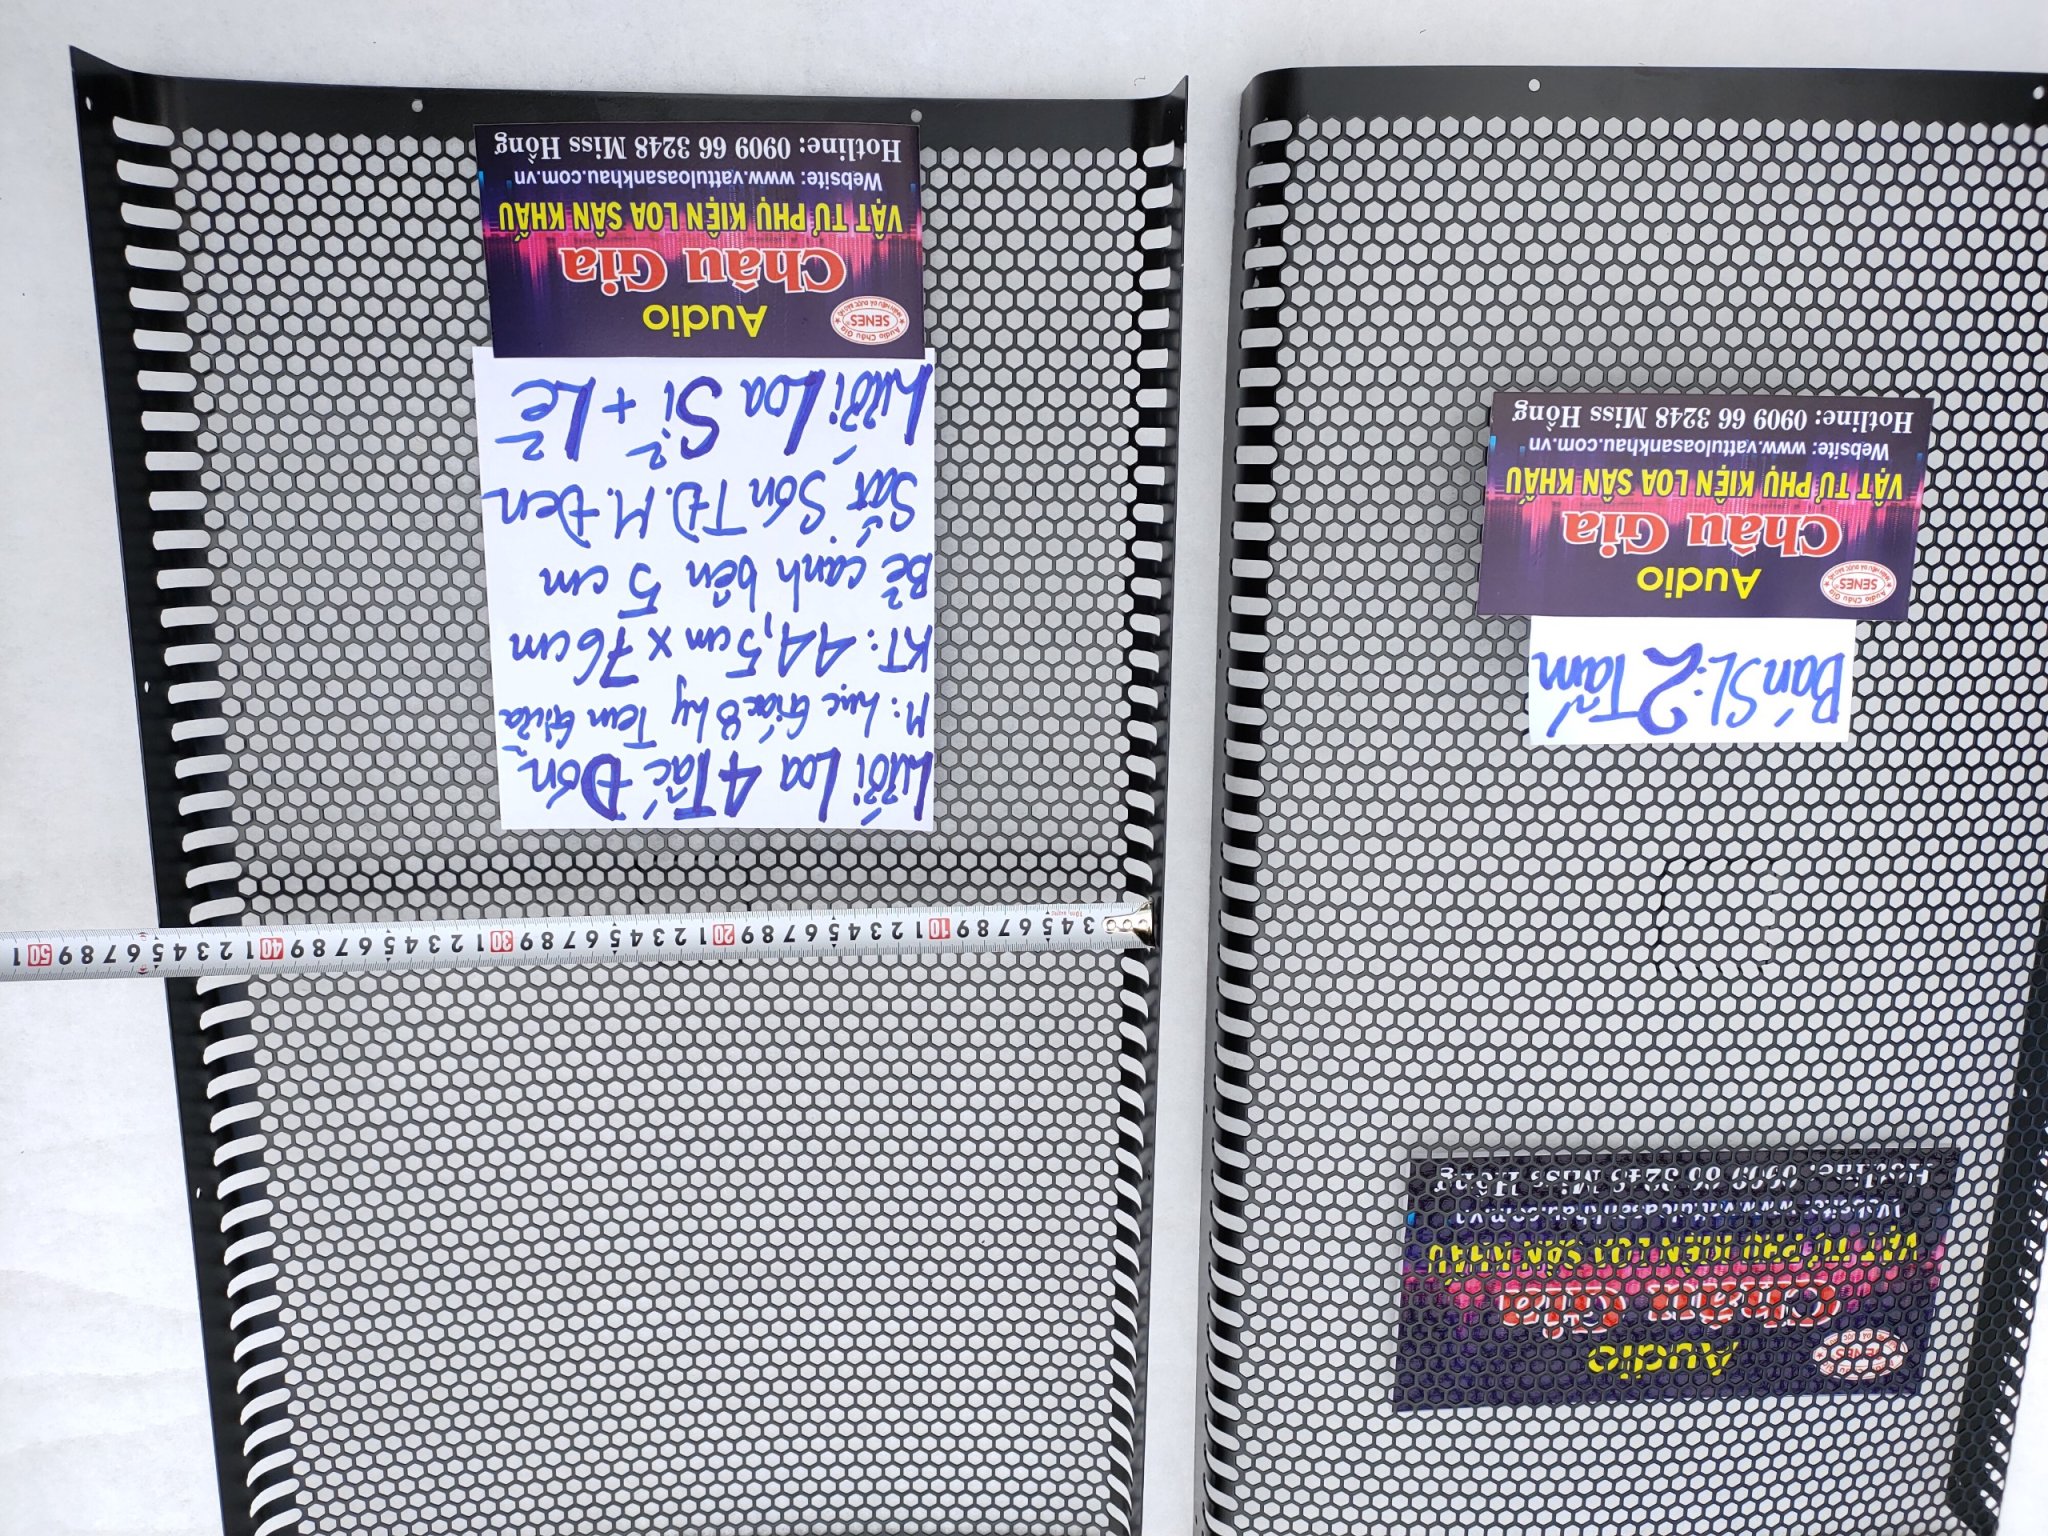 Lưới Loa 4 Tấc Đơn
M: Lục Giác 8 ly Tem Giữa
KT: 44,5cm x 76cm
Bẻ cạnh bên 5 cm
Sắt Sơn TĐ.M.Đen
Lưới Loa Sỉ + Lẻ
SENES
Audio
Châu Gia
VẬT TƯ PHỤ KIỆN LOA SÂN KHẤU
Website: www.vattuloasankhau.com.vn
Hotline: 0909 66 3248 Miss Hồng
3 4 5 6 7 8 9 10 1 2 3 4 5 6 7 8 9 20 1 2 3 4 5 6 7 8 9 30 1 2 3 4 5 6 7 8 9 40 1 2 3 4 5 6 7 8 9 50 1
SENES
Audio
Châu Gia
VẬT TƯ PHỤ KIỆN LOA SÂN KHẤU
Website: www.vattuloasankhau.com.vn
Hotline: 0909 66 3248 Miss Hồng
Bán SL: 2 Tấm
SENES
Audio
Châu Gia
VẬT TƯ PHỤ KIỆN LOA SÂN KHẤU
Website: www.vattuloasankhau.com.vn
Hotline: 0909 66 3248 Miss Hồng